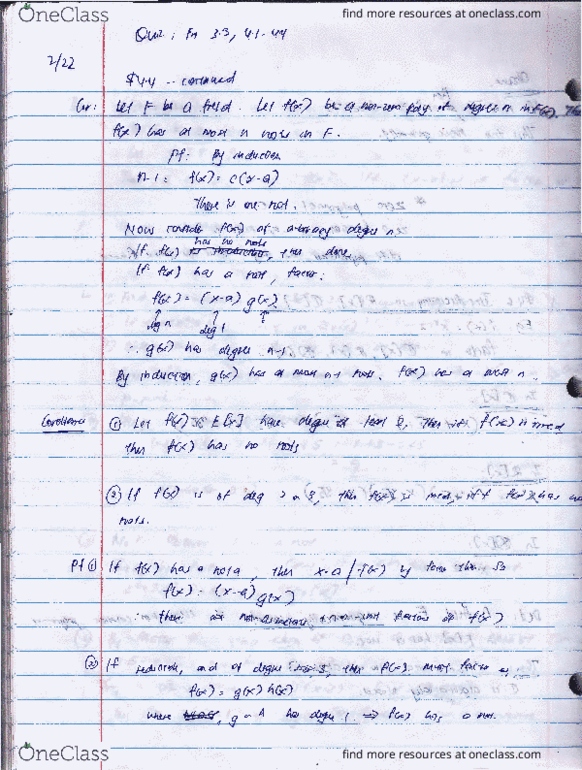 OneClass
find more resources at oneclass.com
Quiz: Fri 3.3, 4.1-4.4
2/22
§4.4 - continued
Cor: Let F be a field. Let f(x) be a non-zero poly of degree n in F[x]. Then
f(x) has at most n roots in F.
Pf: By induction
n=1: f(x) = c(x-a)
There is one root.
Now consider f(x) of arbitrary degree n.
has no roots
If f(x) , then done.
If f(x) has a root, factor:
f(x) = (x-a) g(x)
deg n
deg 1
∴ g(x) has degree n-1
By induction, g(x) has at most n-1 roots. f(x) has at most n.
Corollaries ① Let f(x) ∈ F[x] have degree at least 2, Then if f(x) is irred
then f(x) has no roots
② If f(x) is of deg 2 or 3, then f(x) is irred iff f(x) has no
roots.
Pf ① If f(x) has a root a, then x-a | f(x) by
f(x) = (x-a) g(x)
these are non-unit factors of f(x)
② If reducible, and of degree 3, then f(x) must factor as,
f(x) = g(x) h(x)
where g or h has degree 1 ⇒ f(x) has a root.
OneClass
find more resources at oneclass.com